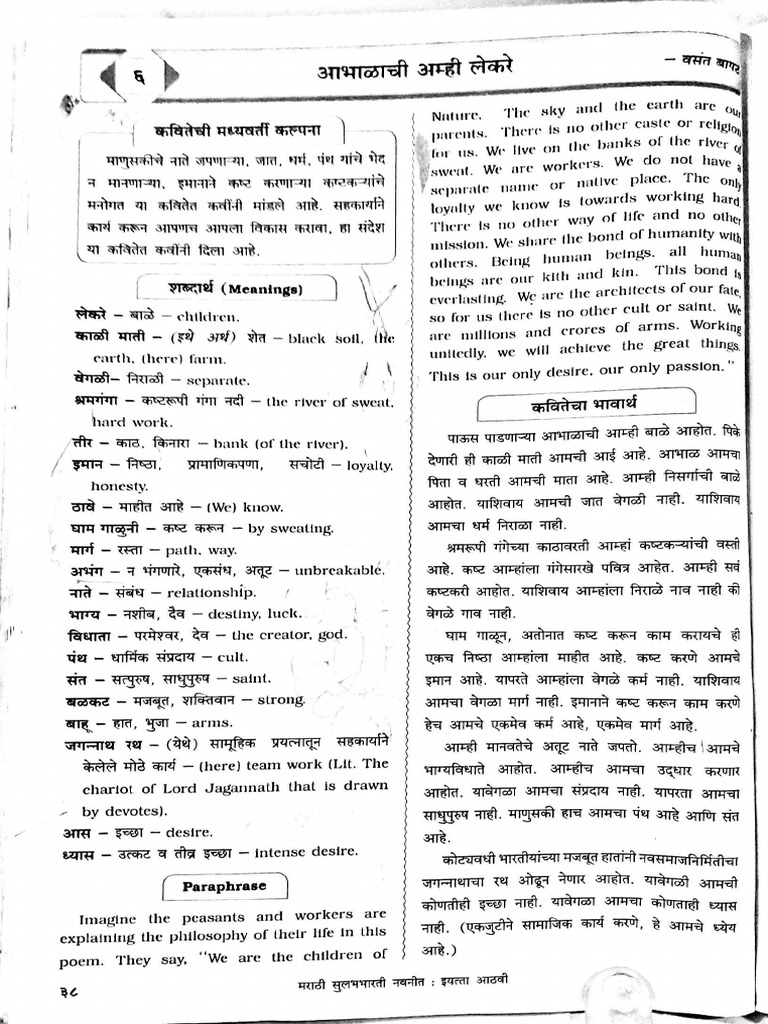 ६
आभाळाची अम्ही लेकरे
– वसंत बापट
कवितेची मध्यवर्ती कल्पना
माणुसकीचे नाते जपणाऱ्या, जात, धर्म, पंथ यांचे भेद
न मानणाऱ्या, इमानाने कष्ट करणाऱ्या कष्टकऱ्यांचे
मनोगत या कवितेत कवींनी मांडले आहे. सहकार्याने
कार्य करून आपणच आपला विकास करावा, हा संदेश
या कवितेत कवींनी दिला आहे.
शब्दार्थ (Meanings)
लेकरे – बाळे – children.
काळी माती – (इथे अर्थ) शेत – black soil, the
earth, (here) farm.
वेगळी– निराळी – separate.
श्रमगंगा – कष्टरूपी गंगा नदी – the river of sweat,
hard work.
तीर – काठ, किनारा – bank (of the river).
इमान – निष्ठा, प्रामाणिकपणा, सचोटी – loyalty,
honesty.
ठावे – माहीत आहे – (We) know.
घाम गाळुनी – कष्ट करून – by sweating.
मार्ग – रस्ता – path, way.
अभंग – न भंगणारे, एकसंध, अतूट – unbreakable.
नाते – संबंध – relationship.
भाग्य – नशीब, दैव – destiny, luck.
विधाता – परमेश्वर, देव – the creator, god.
पंथ – धार्मिक संप्रदाय – cult.
संत – सत्पुरुष, साधुपुरुष – saint.
बळकट – मजबूत, शक्तिवान – strong.
बाहू – हात, भुजा – arms.
जगन्नाथ रथ – (येथे) सामूहिक प्रयत्नातून सहकार्याने
केलेले मोठे कार्य – (here) team work (Lit. The
chariot of Lord Jagannath that is drawn
by devotes).
आस – इच्छा – desire.
ध्यास – उत्कट व तीव्र इच्छा – intense desire.
Paraphrase
Imagine the peasants and workers are
explaining the philosophy of their life in this
poem. They say, “We are the children of
Nature. The sky and the earth are our
parents. There is no other caste or religion
for us. We live on the banks of the river of
sweat. We are workers. We do not have a
separate name or native place. The only
loyalty we know is towards working hard.
There is no other way of life and no other
mission. We share the bond of humanity with
others. Being human beings, all human
beings are our kith and kin. This bond is
everlasting. We are the architects of our fate,
so for us there is no other cult or saint. We
are millions and crores of arms. Working
unitedly, we will achieve the great things.
This is our only desire, our only passion.”
कवितेचा भावार्थ
पाऊस पाडणाऱ्या आभाळाची आम्ही बाळे आहोत. पिके
देणारी ही काळी माती आमची आई आहे. आभाळ आमचा
पिता व धरती आमची माता आहे. आम्ही निसर्गाची बाळे
आहोत. याशिवाय आमची जात वेगळी नाही. याशिवाय
आमचा धर्म निराळा नाही.
श्रमरूपी गंगेच्या काठावरती आम्हां कष्टकऱ्यांची वस्ती
आहे. कष्ट आम्हांला गंगेसारखे पवित्र आहेत. आम्ही सर्व
कष्टकरी आहोत. याशिवाय आम्हांला निराळे नाव नाही की
वेगळे गाव नाही.
घाम गाळून, अतोनात कष्ट करून काम करायचे ही
एकच निष्ठा आम्हांला माहीत आहे. कष्ट करणे आमचे
इमान आहे. यापरते आम्हांला वेगळे कर्म नाही. याशिवाय
आमचा वेगळा मार्ग नाही. इमानाने कष्ट करून काम करणे
हेच आमचे एकमेव कर्म आहे, एकमेव मार्ग आहे.
आम्ही मानवतेचे अतूट नाते जपतो. आम्हीच आमचे
भाग्यविधाते आहोत. आम्हीच आमचा उद्धार करणार
आहोत. यावेगळा आमचा संप्रदाय नाही. यापरता आमचा
साधुपुरुष नाही. माणुसकी हाच आमचा पंथ आहे आणि संत
आहे.
कोट्यवधी भारतीयांच्या मजबूत हातांनी नवसमाजनिर्मितीचा
जगन्नाथाचा रथ ओढून नेणार आहोत. यावेगळी आमची
कोणतीही इच्छा नाही. यावेगळा आमचा कोणताही ध्यास
नाही. (एकजुटीने सामाजिक कार्य करणे, हे आमचे ध्येय
आहे.)
३८
मराठी सुलभभारती नवनीत : इयत्ता आठवी